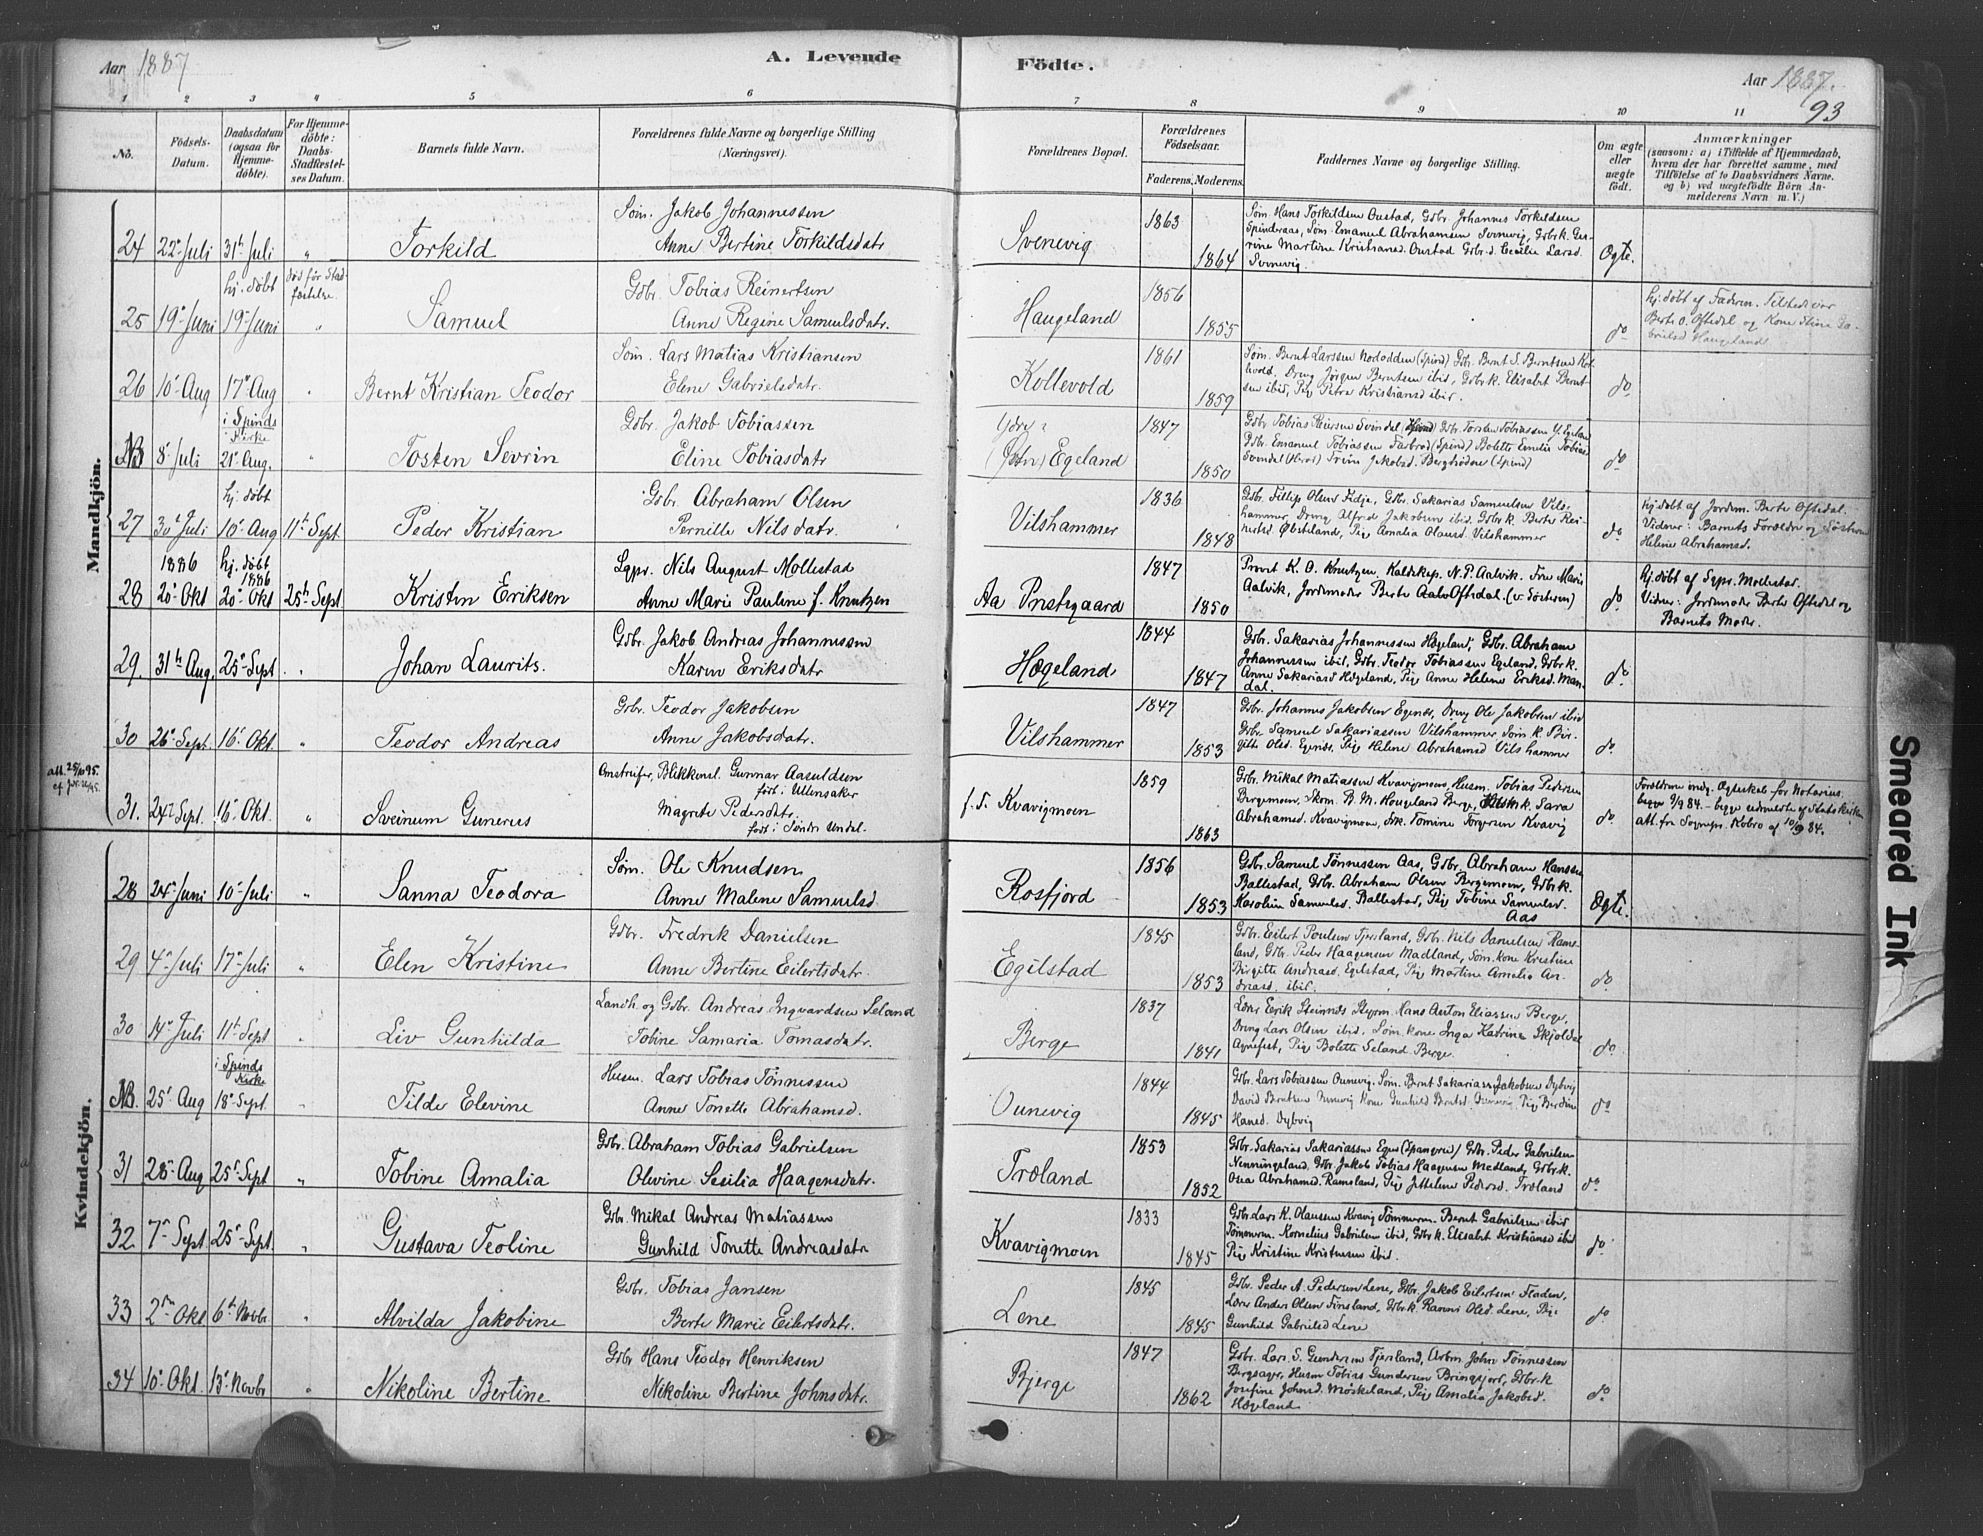 Aar 1887
A. Levende
Födte.
Aar 1887.
93
1 2 3 4 5 6 7 8 9 10 11
No.
Födsels-Datum.
Daabsdatum (ogsaa for Hjemme-döbte).
For Hjemme-döbte: Daabs-Stadfæstel-ses Datum.
Barnets fulde Navn.
Forældrenes fulde Navne og borgerlige Stilling (Næringsvei).
Forældrenes Bopæl.
Forældrenes Födselsaar.
Faderens. Moderens.
Faddernes Navne og borgerlige Stilling.
Om ægte eller uægte födt.
Anmærkninger
(saasom: a) i Tilfælde af Hjemmedaab,
hvem der har forrettet samme, med
Tilföielse af to Daabsvidners Navne.
og b) ved uægtefödte Börn An-
melderens Navn m. V.)
Mandkjön.
24 22 Juli 31 Juli " Torkild
Søm. Jakob Johannessen
Anne Bertine Torkildsdatr
Svenevig 1863 1864
Søm Hans Torkildsen Ounstad, Gdbr. Johannes Torkildsen
Spindsaas, Søm Emanuel Abrahamsen Svenevig, Gdbr.k.
Martine Kristiansd. Ounstad Gdbr.d. Cecilie Larsd.
Svenevig.
Øgte.
25 19 Juni hj. døbt 19 Juni død før Stad-fæstelse. " Samuel
Gdbr. Tobias Reinertsen
Anne Regine Samuelsdatr.
Haugeland 1856 1855
do
hj. døbt af Faderen. Tilstede var
Berte O. Oftedal og Kone Stine Ga-
brielsd Haugeland
26 10 Aug 17 Aug " Bernt Kristian Teodor
Søm. Lars Matias Kristiansen
Elene Gabrielsdatr.
Kollevold 1861 1859
Søm. Bernt Larssen Nordodden (Spind) Gdbr. Bernt S. Berntsen Kol-
levold. Dreng Jørgen Berntsen ibid, Gdbr.k. Elisabet Bernt-
sen ibid, Pig Petra Kristiansd ibid.
do
NB 8 Juli i Spinds Kirke 21 Aug. " Tosten Sevrin
Gdbr. Jakob Tobiassen
Eline Tobiasdatr
Ydre
(Østn) Egeland 1847 1850
Gdbr Tobias Reiersen Svindel (Spind) Gdbr. Torsten Tobiassen Y. Egeland
Gdbr. Emanuel Tobiassen Farbrød (Spind) Bolette Emilie Tobias
Trine Jakobsd. (Spind)
do
27 30 Juli hj. døbt 10 Aug 11 Sept. Peder Kristian
Gdbr. Abraham Olsen
Pernille Nilsdatr.
Vilshammer 1836 1848
Gdbr. Fillip Olsen Kidje, Gdbr. Sakarias Samuelsen Vils-
hammer, Dreng Alfred Jakobsen ibid. Gdbr.k. Berte Rei-
nertsd. Øbstland, Pige Amalia Olausd. Vilshammer
do
hj. døbt af Jordem. Berte Oftedal.
Vidner: Barnets Forældre og Søsteren
Helene Abrahamsd.
28 1886 20 Okt hj. døbt 1886 20 Okt 25 Sept Kristen Eriksen
Sgpr. Nils August Mollestad
Anne Marie Pauline f. Knutzen
Aa Præstegaard 1847 1850
Provst K. O. Knutzen, Kaldskap. N. P. Aalvik. Fru Marie
Aalvik, Jordemoder Berte Oftedal. (v Søsteren)
do
hj. døbt af Sgpr. Mollestad.
Vidner: Jordemoder Berte Oftedal og
Barnets Moder.
29. 31 Aug. 25 Sept " Johan Laurits.
Gdbr. Jakob Andreas Johannessen
Karen Eriksdatr
Hægeland 1844 1847
Gdbr. Sakarias Johannessen Hægeland, Gdbr. Abraham
Johannessen ibid, Gdbr. Teodor Tobiassen Egeland, Gdbr.k.
Anne Sakariasd Hægeland, Pige Anne Helene Eriksd. Man-
dal.
do
30 26 Sept. 16 Okt. " Teodor Andreas
Gdbr. Teodor Jakobsen
Anne Jakobsdatr.
Vilshammer 1847 1853
Gdbr. Johannes Jakobsen Egenes, Dreng Ole Jakobsen ibid
Gdbr. Samuel Sakariassen Vilshammer Søm.k. Bir-
gitte Olsd. Egenes, Pige Helene Abrahamsd Vilshammer
do
att. 25/10 95.
31. 24 Sept. 16 Okt. " Sveinum Gunerus
Blikkensl. Gunnar Aasuldsen
født i Ullensaker
Magrete Pedersdatr.
født i Søndre Undal.
f. T. Kvavigmoen 1859 1863
Gdbr. Mikal Matiassen Kvavigmoen, Husm. Tobias Pedersen
Bergemoen, Skom. B. M. Hougeland Berge, Husm.k. Sara
Abrahamsd. Kvavigmoen, Tomine Torgersen Kvavig
do
Forældrene indg. Ægteskab for Notarius.
begge 9/9 84. - begge udmeldte af Statskirken
att. fra Sognepr. Kobro af 10/9 84.
Kvindekjön.
28 24 Juni 10 Juli " Sanna Teodora
Søm. Ole Knudsen
Anne Malene Samuelsd.
Rosfjord 1856 1853
Gdbr. Samuel Tønnessen Aas, Gdbr. Abraham Hanssen
Ballestad, Gdbr. Abraham Olsen Bergemoen, Gdbr.k.
Karoline Samuelsd. Ballestad, Pige Tobine Samuelsd.
Aas
Øgte.
29 4 Juli 17 Juli " Elen Kristine
Gdbr. Fredrik Danielsen
Anne Bertine Eilertsdatr.
Egilstad 1845 1853
Gdbr. Eilert Poulsen Fjersland, Gdbr. Nils Danielsen Rams-
land, Gdbr Peder Haagensen Madland, Søm.kone Kristine
Birgitte Andreasd. Egilstad, Pige Martine Amalia An-
dreasd. ibid.
do
30 14 Juli 11 Sept " Liv Gunhilda
Landh. og Gdbr. Andreas Ingvardsen Seland
Tobine Samaria Tomasdatr.
Berge 1837 1841
Lærer Erik Steinnes Styrm. Hans Anton Eliassen Berge,
Dreng Lars Olsen ibid, Søm.kone Inga Katrine Skjoldal
Agnefest, Pige Bolette Seland Berge.
do
NB. 25 Aug i Spinds Kirke 18 Sept. " Tilde Elevine
Husm. Lars Tobias Tønnessen
Anne Tonette Abrahamsd.
Ounevig 1844 1845
Gdbr. Lars Tobiassen Ounevig, Søm. Bernt Sakariassen Jakobsen Dybvig
David Berntsen Ounevig Kone Gunhild Berntsd. Ounevig Pige Berdine
Hansd. Dybvig
do
31 28 Aug 25 Sept " Tobine Amalia
Gdbr. Abraham Tobias Gabrielsen
Olevine Sesilia Haagensdatr.
Træland 1853 1852
Gdbr. Sakarias Sakariassen Egenes (Spangreid) Gdbr. Peder Gabrielsen
Nenningsland, Gdbr. Jakob Tobias Haagensen Medland, Gdbr.k.
Abrahamsd. Ramsland, Pige Jettelene Pedersd. Træland
do
32 7 Sept 25 Sept " Gustava Teoline
Gdbr. Mikal Andreas Matiassen
Gunhild Tonette Andreasdatr
Kvavigmoen 1833 1845
Gdbr. Lars K. Olaussen Kvavig Tømmerm. Bernt Gabrielsen ibid
Tømmerm. Kornelius Gabrielsen ibid, Gdbr.k. Elisabet Kristiansd ibid
Pige Kristine Kristensen ibid.
do
33 2 Okt 6 Novbr " Alvilda Jakobine
Gdbr. Tobias Jansen
Berte Marie Eilertsdatr.
Lene 1845 1845
Gdbr. Peder A. Pedersen Lene, Gdbr. Jakob Eilertsen Fladen,
Lærer Anders Olsen Finsland, Gdbr.k. Ranni Olsd. Lene, Pige
Gunhild Gabrielsd Lene
do
34 10 Okt. 13 Novbr " Nikoline Bertine
Gdbr Hans Teodor Henriksen
Nikoline Bertine Johnsdatr.
Bjerge 1847 1862
Gdbr. Lars S. Gundersen Fjersland, Arbm John Tønnessen
Bergsager, Husm Tobias Gundersen Bringsjord, Gdbr.k
Josefine Johnsd. Møskeland, Pige Amalia Jakobsd.
Hægeland
do
Smeared Ink